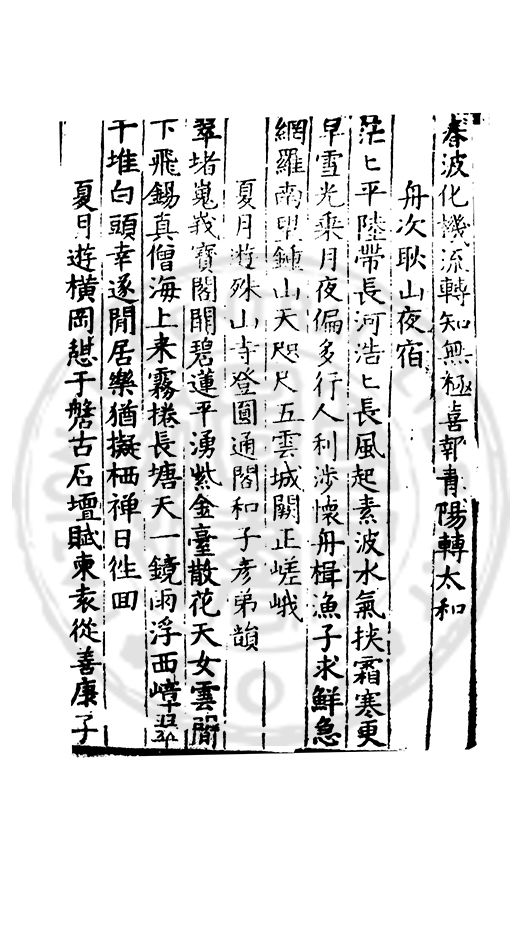 春波化機流轉知無極喜報青陽轉太和
舟次耿山夜宿
茫〻平陸帶長河浩〻長風起素波水氣挾霜寒更
早雪光乘月夜偏多行人利涉懷舟楫漁子求鮮急
網羅南望鍾山天咫尺五雲城闕正嵯峨
夏月遊殊山寺登圓通閣和子彥弟韻
翠堵嵬峩寶閣開碧蓮平湧紫金臺散花天女雲間
下飛錫真僧海上来霧捲長塘天一鏡雨浮西崦
千堆白頭幸遂閒居樂猶擬栖禅日徃囬
夏日遊横岡憇于盤古石壇賦柬袁從善康子